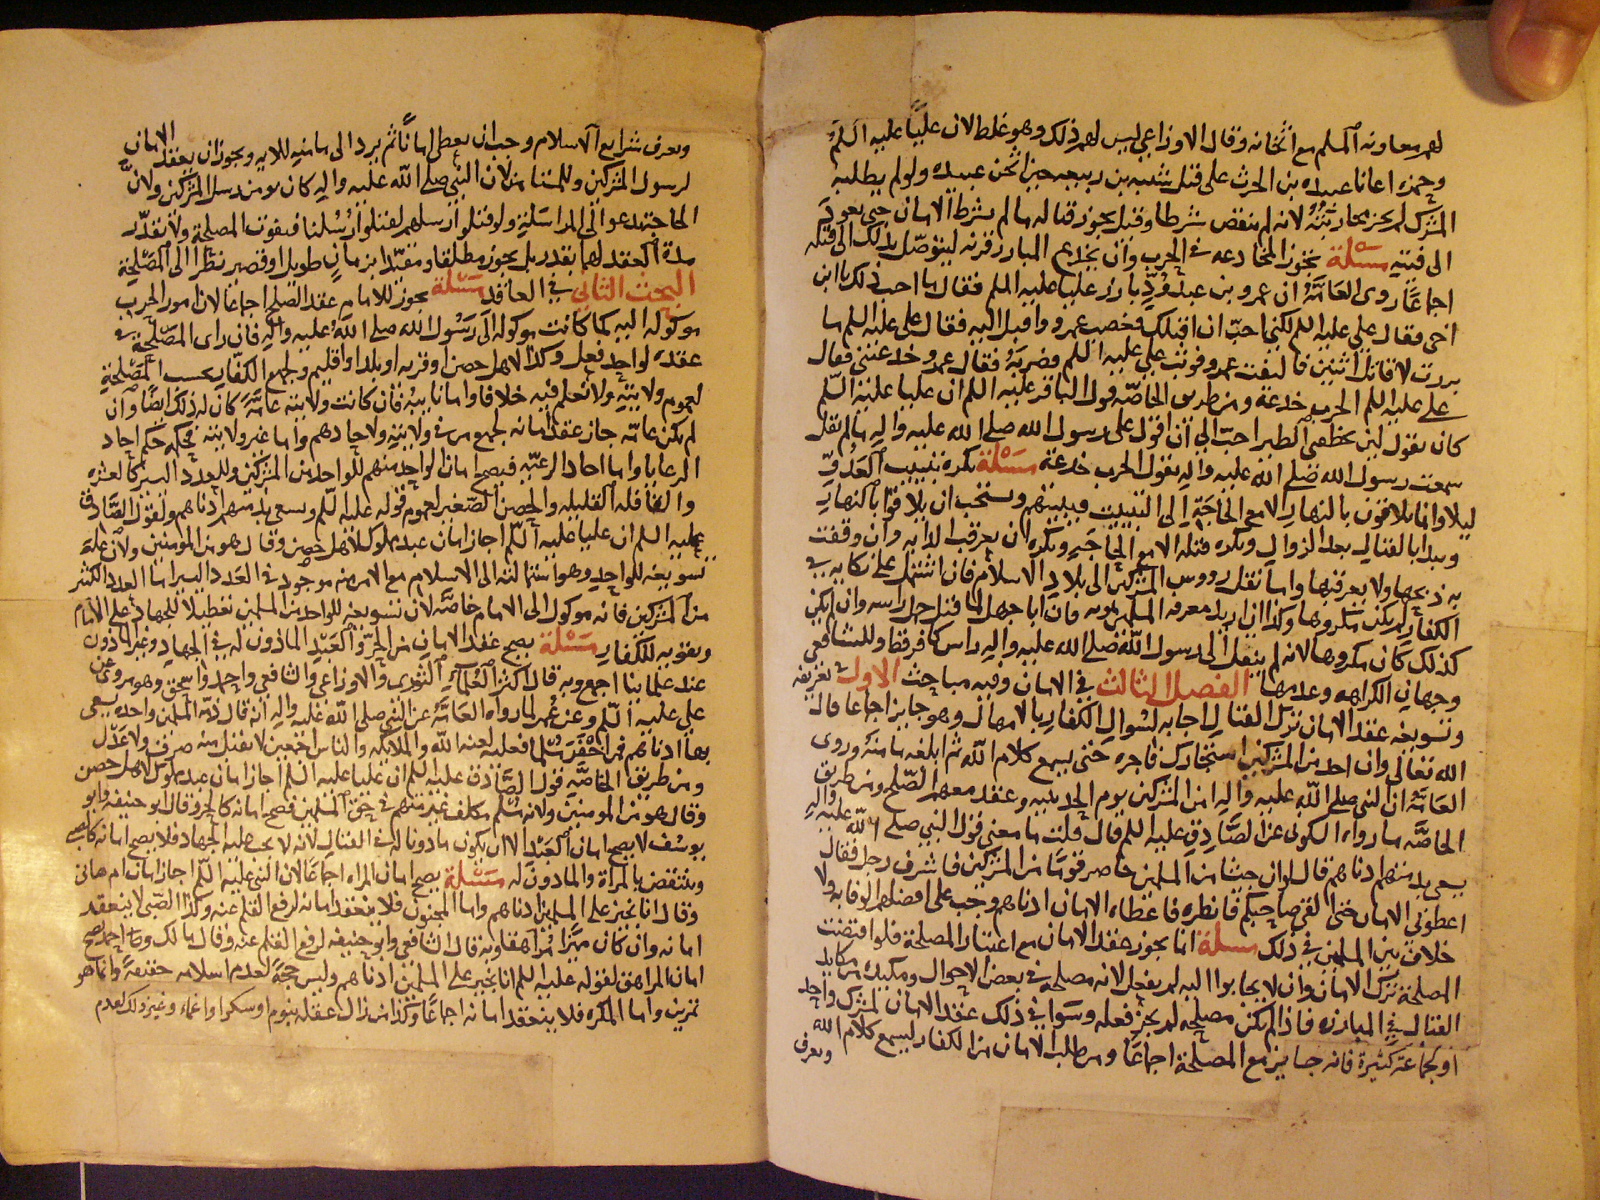 لهم معاونه المسلم مع اثخانه وقال الاوزاعي ليس لهم ذلك وهو غلط لان عليا عليه السلم
وحمزه اعانا عبيده بن الحرث على قتل شيبه بن ربيعه حين اثخن عبيده ولو لم يطلبه
المشرك لم يجز محاربته لانه لم ينقض شرطا وقيل يجوز قتاله ما لم يشرط الامان حتى يعود
الى فئته مسئلة تجوز المخادعه في الحرب وان يخدع المبارز قرنه ليتوصل بذلك الى قتله
اجماعا روى العامة ان عمرو بن عبد ود بارز عليا عليه السلم فقال ما احب ذلك يا ابن
اخي فقال علي عليه السلم لكني احب ان اقتلك فغضب عمرو واقبل اليه فقال علي عليه السلم ما
برزت لاقاتل اثنين فالتفت عمرو فوثب علي عليه السلم فضربه فقال عمرو خدعتني فقال
علي عليه السلم الحرب خدعة ومن طريق الخاصه قول الباقر عليه السلم ان عليا عليه السلم
كان يقول لئن تخطفني الطير احب الي ان اقول على رسول الله صلى الله عليه واله ما لم يقل
سمعت رسول الله صلى الله عليه واله يقول الحرب خدعة مسئلة يكره تبييت العدو
ليلا وانما يلاقون بالنهار الا مع الحاجة الى التبييت فيبيتهم ويستحب ان يلاقوا بالنهار
ويبدا بالقتال بعد الزوال ويكره قتله الا مع الحاجه ويكره ان يعرقب الدابه وان وقفت
به ذبحها ولا يعرقبها واما نقل رووس المشركين الى بلاد الاسلام فان اشتمل على نكايه في
الكفار لم يكن مكروها وكذا ان اريد معرفه المسلمين بموته فان ابا جهل لما قتل حمل راسه وان لم يكن
كذلك كان مكروها لانه لم ينقل الى رسول الله صلى الله عليه واله راس كافر قط وللشافعي
وجهان الكراهه وعدمها الفصل الثالث في الامان وفيه مباحث الاول في تعريفه
وتسويغه عقد الامان ترك القتال اجابه لسوال الكفار بالامهال وهو جايز اجماعا قال
الله تعالى وان احد من المشركين استجارك فاجره حتى يسمع كلام الله ثم ابلغه مامنه وروى
العامة ان النبي صلى الله عليه واله امن المشركين يوم الحديبيه وعقد معهم الصلح ومن طريق
الخاصه ما رواه السكوني عن الصادق عليه السلم قال قلت ما معنى قول النبي صلى الله عليه واله
يسعى بذمتهم ادناهم قال لو ان جيشا من المسلمين حاصر قوما من المشركين فاشرف رجل فقال
اعطوني الامان حتى القى صاحبكم فاناظره فاعطاه الامان ادناهم وجب على افضلهم الوفا به ولا
خلاف بين المسلمين في ذلك مسئلة انما يجوز عقد الامان مع اعتبار المصلحة فلو اقتضت
المصلحة ترك الامان وان لا يجابوا اليه لم يفعل لانه مصلحه في بعض الاحوال ومكيده من مكايد
القتال في المبارزه فاذا لم يكن مصلحه لم يجز فعله وسوا في ذلك عقد الامان لمشرك واحد
او لجماعة كثيرة فانه جايز مع المصلحة اجماعا ومن طلب الامان من الكفار ليسمع كلام الله
ويعرف
ويعرف شرايع الاسلام وجب ان يعطى امانا ثم يرد الى مامنه للايه ويجوز ان يعقد الامان
لرسول المشركين وللمستامن لان النبي صلى الله عليه واله كان يومن رسل المشركين ولان
الحاجة تدعوا الى المراسلة ولو قتلوا رسلهم لقتلوا رسلنا فيفوت المصلحة ولا تقدر
مدة العقد لهما بقدر بل يجوز مطلقا ومقيدا بزمان طويل او قصير نظرا الى المصلحة
البحث الثاني في العاقد مسئلة يجوز للامام عقد الصلح اجماعا لان امور الحرب
موكوله اليه كما كانت موكوله الى رسول الله صلى الله عليه واله فان راى المصلحة في
عقده لواحد فعل وكذا لاهل حصن او قريه او بلد او اقليم ولجميع الكفار بحسب المصلحة
لعموم ولايته ولا نعلم فيه خلافا واما نايبه فان كانت ولايته عامة كان له ذلك ايضا وان
لم يكن عامه جاز عقد امانه لجميع من في ولايته ولاحادهم واما غير ولايته فحكمه حكم احاد
الرعايا واما احاد الرعيه فيصح امان الواحد منهم للواحد من المشركين وللعدد اليسير كالعشره
والقافله القليله والحصن الصغير لعموم قوله عليه السلم ويسعى بذمتهم ادناهم ولقول الصادق
عليه السلم ان عليا عليه السلم اجاز امان عبد مملوك لاهل حصن وقال هو من المؤمنين ولان علة
تسويغه للواحد وهو استمالته الى الاسلام مع الامن منه موجود في العدد اليسير اما العدد الكثير
من المشركين فانه موكول الى الامام خاصة لان تسويغه للواحد من المسلمين تعطيلا للجهاد على الامام
وتقويه للكفار مسئلة يصح عقد الامان من الحر والعبد الماذون له في الجهاد وغير الماذون
عند علمائنا اجمع وبه قال اكثر العلماء الثوري والاوزاعي والشافعي واحمد واسحق وهو مروي عن
علي عليه السلم وعن عمر لما رواه العامة عن النبي صلى الله عليه واله انه قال ذمة المسلمين واحده يسعى
بها ادناهم فمن اخفر مسلما فعليه لعنه الله والملائكه والناس اجمعين لا يقبل منه صرف ولا عدل
ومن طريق الخاصه قول الصادق عليه السلم ان عليا عليه السلم اجاز امان عبد مملوك لاهل حصن
وقال هو من المومنين ولانه مسلم مكلف غير متهم في حق المسلمين فصح امانه كالحر وقال ابو حنيفه وابو
يوسف لا يصح امان العبد الا ان يكون ماذونا له في القتال لانه لا يجب عليه الجهاد فلا يصح امانه كالصبي
وينتقض بالمراة والماذون له مسئلة يصح امان المراه اجماعا لان النبي عليه السلم اجاز امان ام هاني
وقال انما يجير على المسلمين ادناهم واما المجنون فلا ينعقد امانه لرفع القلم عنه وكذا الصبي لا ينعقد
امانه وان كان مميزا مراهقا وبه قال الشافعي وابو حنيفه لرفع القلم عنه وقال مالك واحمد يصح
امان المراهق لقوله عليه السلم انما يجير على المسلمين ادناهم وليس حجة لعدم اسلامه حقيقة وانما هو
تمرين واما المكره فلا ينعقد امانه اجماعا وكذا من زال عقله بنوم او سكر او اغماء وغير ذلك لعدم